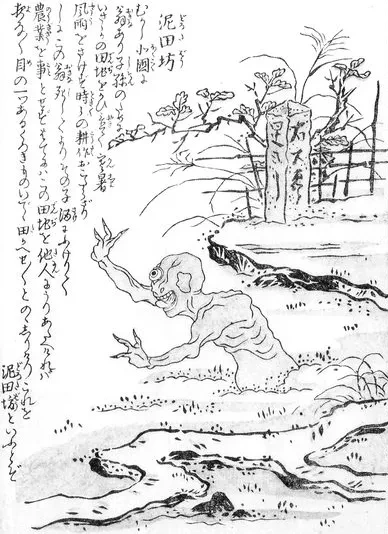 泥田坊
むかし北国に
翁あり子孫のために
いさゝかの田地をかひ置て寒暑
風雨をさけず時々の耕作おこたらざり
しにこの翁死してよりその子酒にふけりて
農業を事とせずはてにはこの田地を他人にうりあたへければ
夜な〱目の一つあるくろきものいでゝ田かへせ〱とのゝしりけりこれを
泥田坊といふとぞ